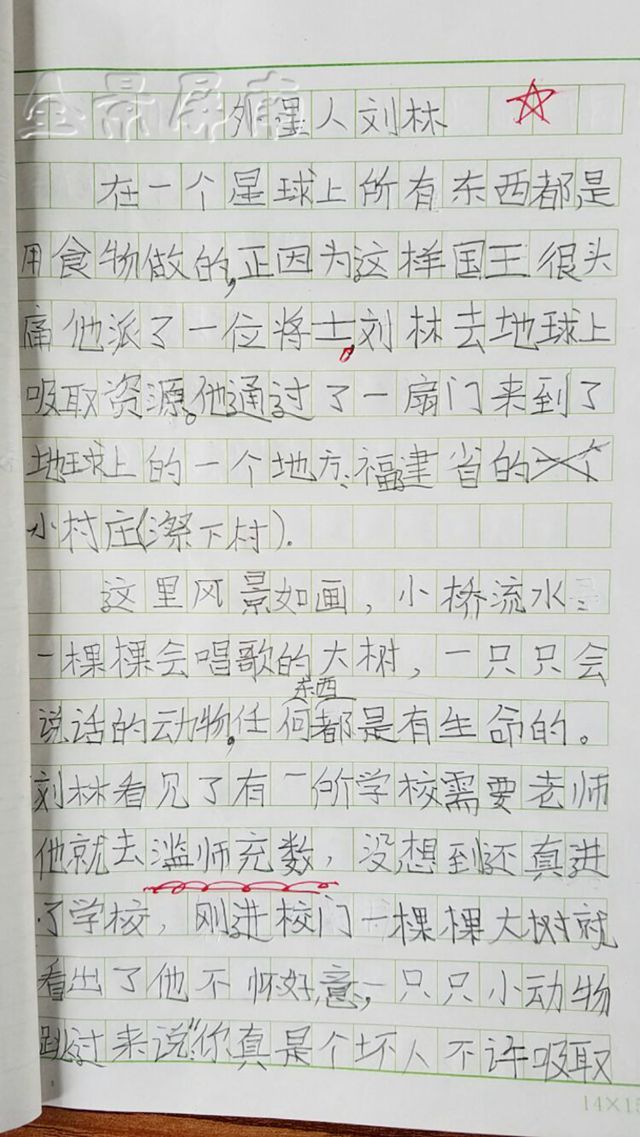 全景屏南
外星人刘林
在一个星球上所有东西都是
用食物做的,正因为这样国王很头
痛他派了一位将士,刘林去地球上
吸取资源。他通过了一扇门来到了
地球上的一个地方:福建省的
小村庄(漈下村).
这里风景如画，小桥流水:
一棵棵会唱歌的大树，一只只会
说话的动物,任何东西都是有生命的。
刘林看见了有一所学校需要老师
他就去滥师充数，没想到还真进
了学校，刚进校门一棵棵大树就
看出了他不怀好意,一只只小动物
跳过来说“你真是个坏人不许吸取
14×15